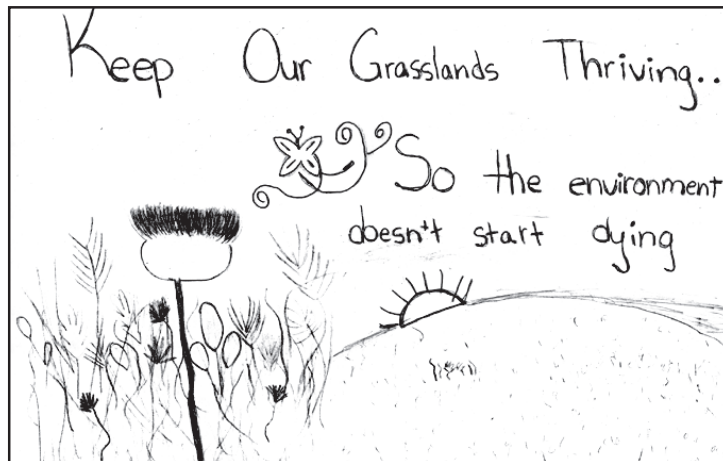 Keep Our Grasslands Thriving..
So the environment
doesn't start dying